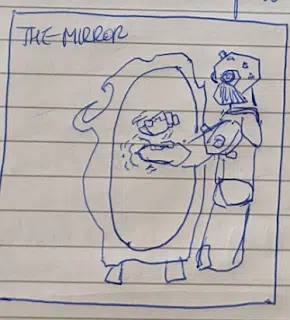 THE MIRROR